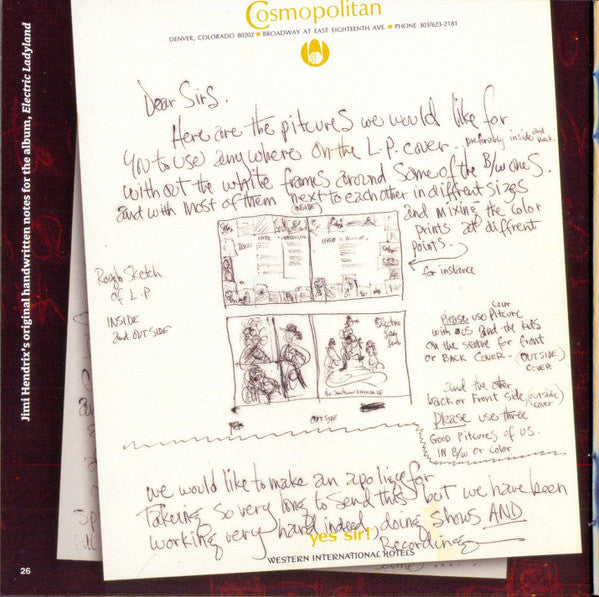 Cosmopolitan
DENVER, COLORADO 80202 ■ BROADWAY AT EAST EIGHTEENTH AVE. ■ PHONE 303/623-2181
Dear Sirs.
Here are the pitcures we would like for
you to use anywhere on the L.P. cover.. preferably inside and back.
without the white frames around some of the B/w ones.
and with most of them next to each other in different sizes
(INSIDE)
and mixing the color
prints at diffrent
points.
for instance
Rough Sketch
of L.P
INSIDE
and OUTSIDE
Please use cover Pitcure
with US and the kids
on the statue for front
or BACK COVER - (OUTSIDE)
COVER
and the other
back or Front side (outside)
cover
Please use three
Good Pitcures of US.
IN B/w or color
OUTSIDE
we would like to make an apoligy for
Takeing so very long to send this but we have been
working very hard indeed, doing shows AND
Recording
yes sir!
WESTERN INTERNATIONAL HOTELS
Jimi Hendrix's original handwritten notes for the album, Electric Ladyland
26